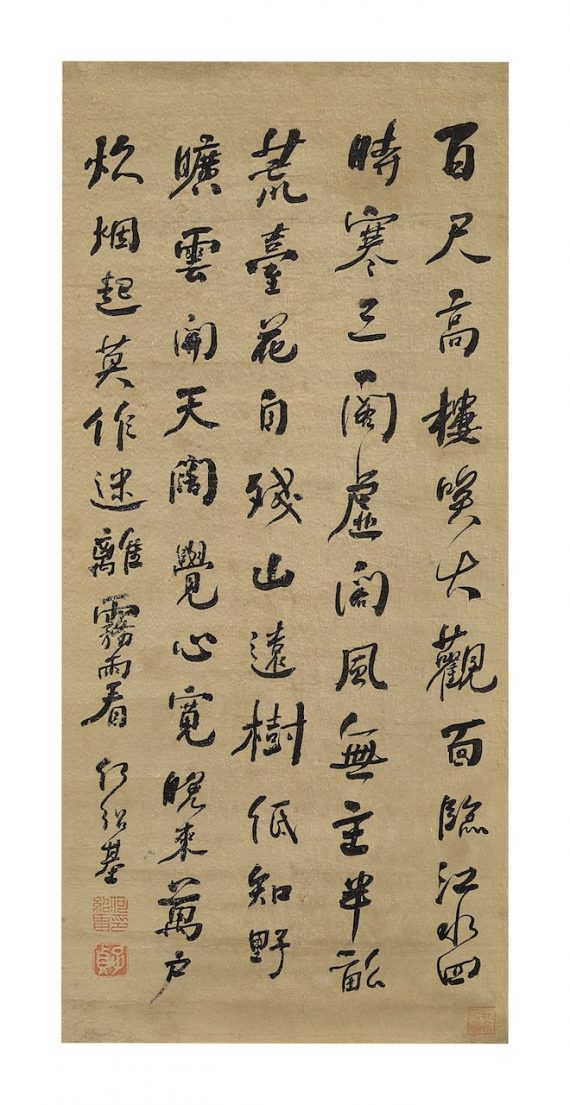 百尺高樓喚大觀面臨江水四
時寒三間虛閣風無主半畝
荒臺花自殘山遠樹低知野
曠雲開天闊覺心寬晚來萬戶
炊烟起莫作迷離霧雨看 何紹基
何印紹基
子貞